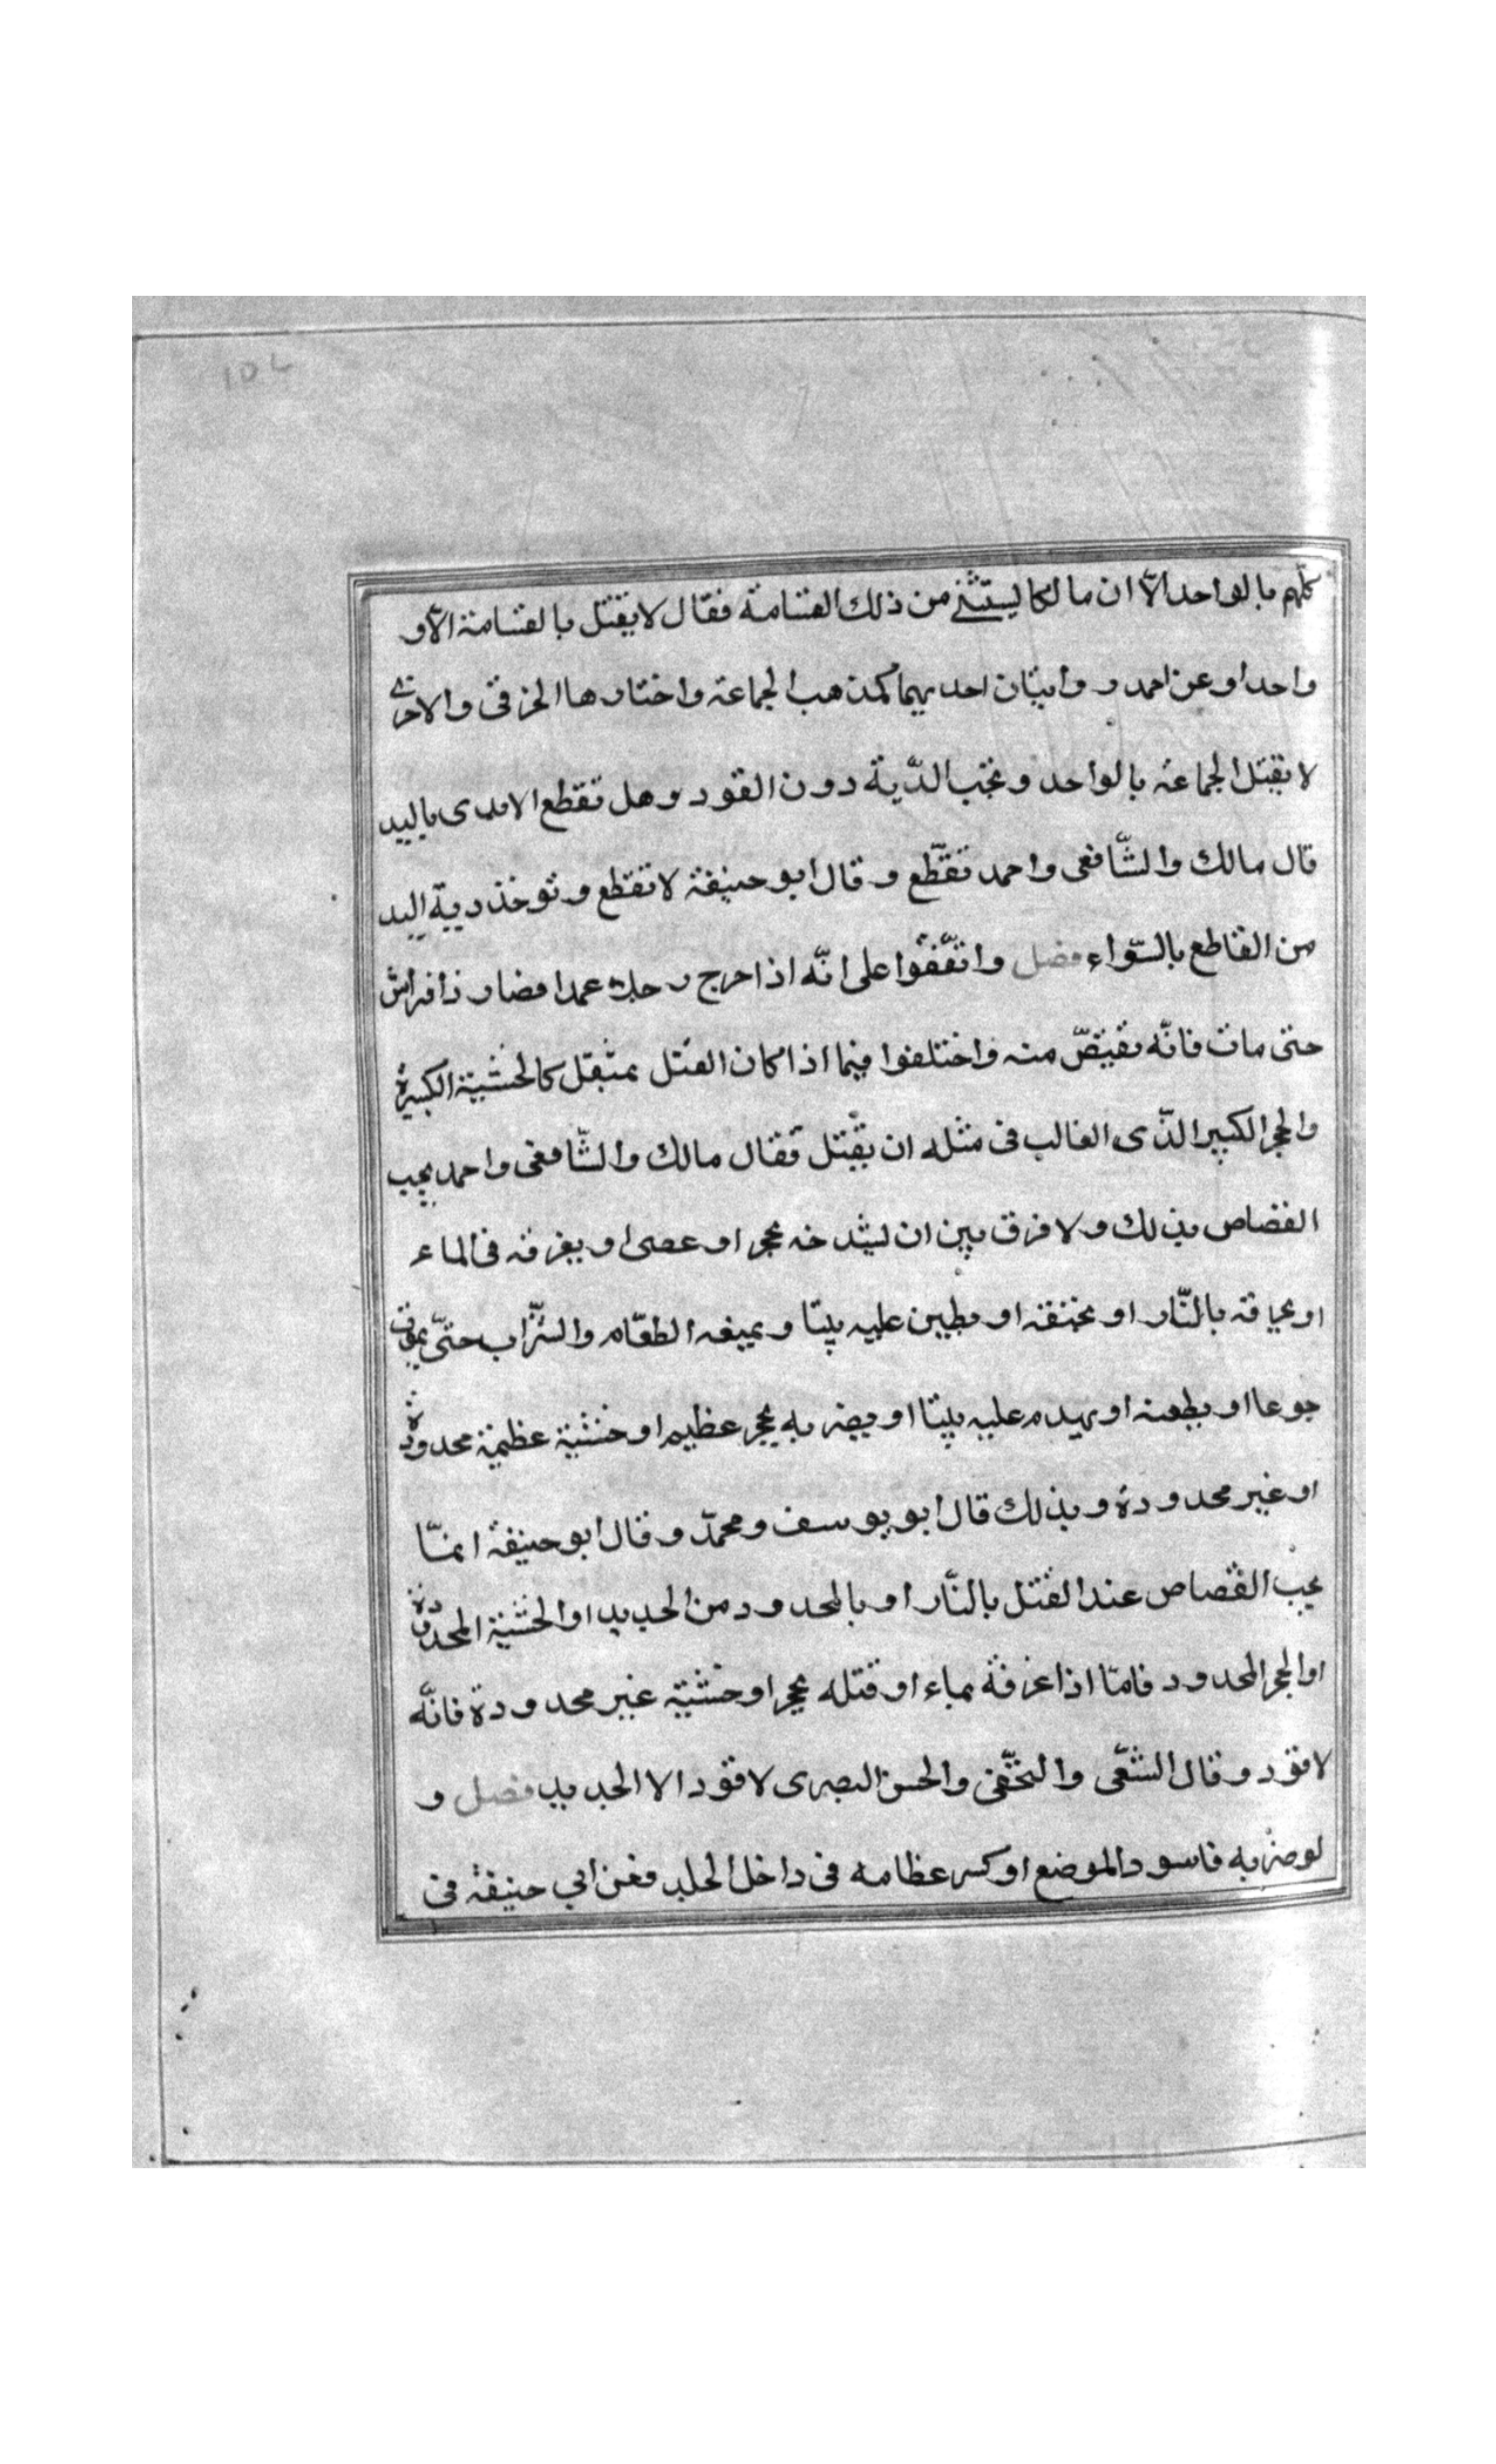 كلّهم بالواحد الاّ ان مالكا يستثنى من ذلك القسامة فقال لا يقتل بالقسامة الاّ و
واحدا وعن احمد روايتان احديهما كمذهب الجماعة واختارها الخرقى والاخرى
لا يقتل الجماعة بالواحد وتجب الدّية دون القود وهل تقطع الايدى باليد
قال مالك والشّافعى واحمد تقطّع وقال ابو حنيفة لا تقطع وتوخذ دية اليد
من القاطع بالسّواء فصل واتّفقوا على انّه اذا جرح رجلا عمدا فصار ذا فراش
حتى مات فانّه يقتصّ منه واختلفوا فيما اذا كان القتل بمثقل كالخشبة الكبيرة
والحجر الكبير الذّى الغالب فى مثله ان يقتل فقال مالك والشّافعى واحمد يجب
القصاص بذلك ولا فرق بين ان يشدخه بحجر او عصى او يغرقه فى الماء
او يحرقه بالنّار او يخنقه او يطين عليه بيتا ويمنعه الطعّام والشّراب حتّى يموت
جوعا او يطعنه او يهدم عليه بيتا او يضربه بحجر عظيم او خشبة عظيمة محدودة
او غير محدودة وبذلك قال ابو يوسف ومحمدّ وقال ابو حنيفة انمّا
يجب القصاص عند القتل بالنّار او بالمحدود من الحديد او الخشبة المحدودة
او الحجر المحدود فامّا اذا غرقه بماء او قتله بحجر او خشبة غير محدودة فانّه
لا قود وقال الشّعبى والنخّعى والحسن البصرى لا قود الا الحديد فصل و
لو ضربه فاسود الموضع او كسر عظامه فى داخل الجلد فعن ابي حنيفة فى